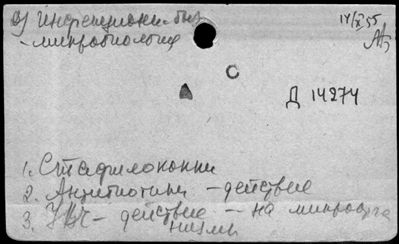 8) Инфекцион. бол.
14/X 55
- микробиология
Д 14274
1. Стафилококки
2. Антибиотики - действие
3. УВЧ - действие - на микроорга
низмы